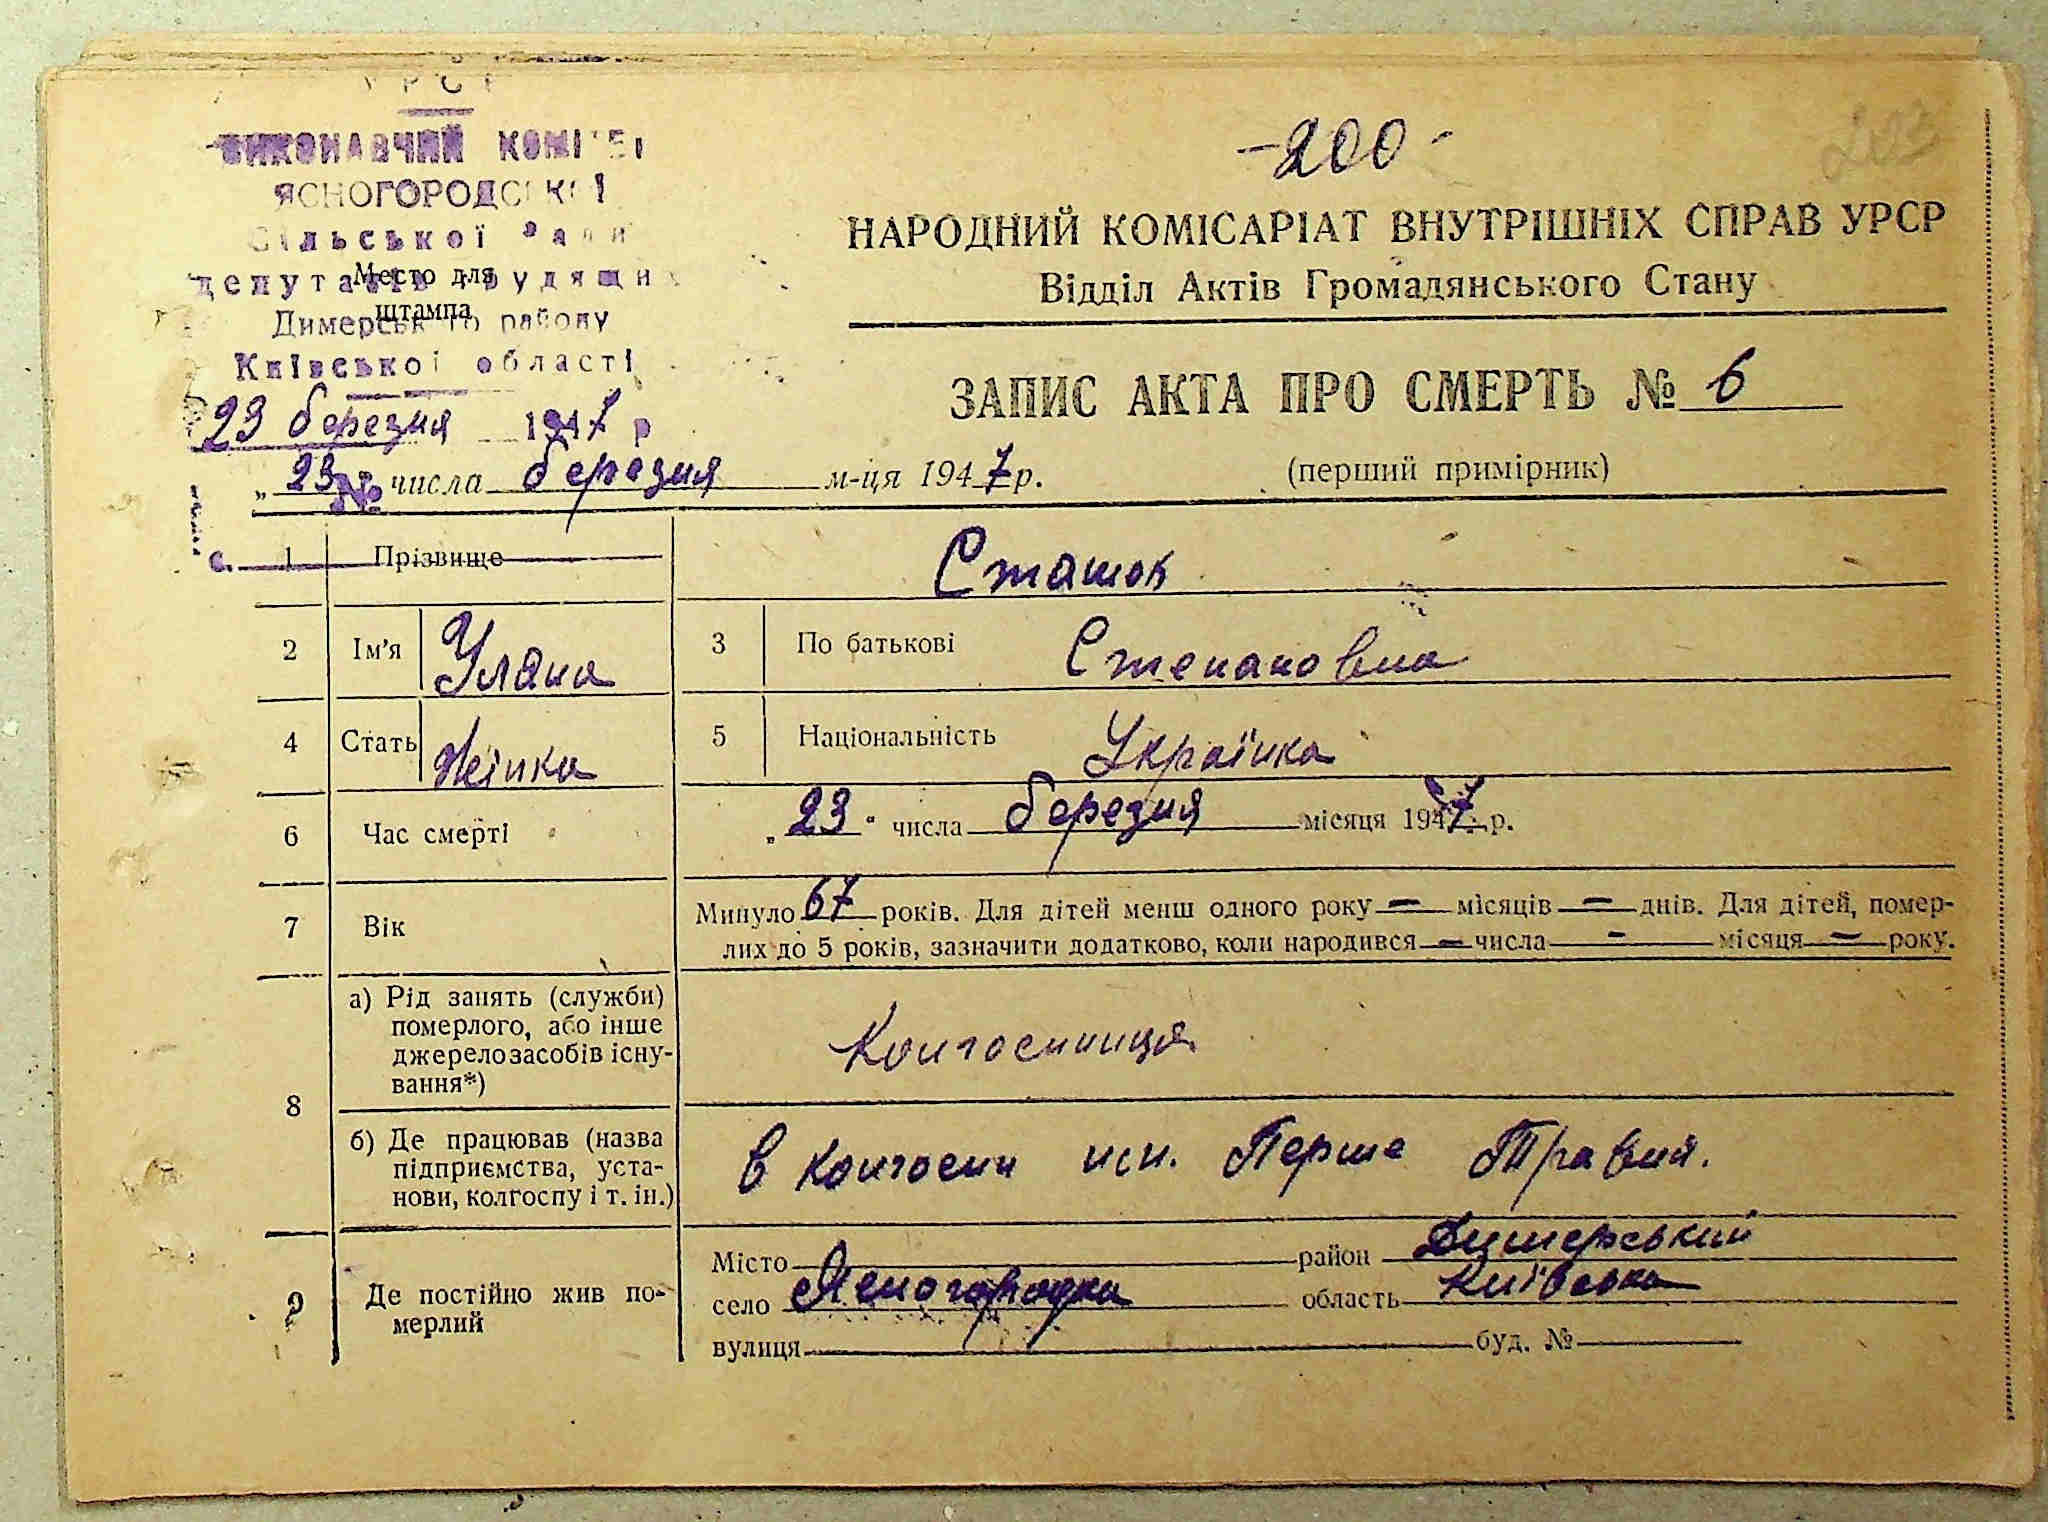 УРСР
ВИКОНАВЧИЙ КОМІТЕТ
ЯСНОГОРОДСЬКОЇ
Сільської Ради
депутатів трудящих
Место для
штампа
Димерського району
Київської області
23 березня 1947 р
№
-200-
203
НАРОДНИЙ КОМІСАРІАТ ВНУТРІШНІХ СПРАВ УРСР
Відділ Актів Громадянського Стану
ЗАПИС АКТА ПРО СМЕРТЬ № 6
„23 числа березня м-ця 1947 р.
(перший примірник)
1 Прізвище Сташок
2 Ім'я Уляна 3 По батькові Степановна
4 Стать Жінка 5 Національність Українка
6 Час смерті „23“ числа березня місяця 1947 р.
7 Вік Минуло 67 років. Для дітей менш одного року — місяців — днів. Для дітей, помер-
лих до 5 років, зазначити додатково, коли народився — числа — місяця — року.
8 а) Рід занять (служби)
померлого, або інше
джерело засобів існу-
вання*)
Колгоспниця
б) Де працював (назва
підприємства, уста-
нови, колгоспу і т. ін.)
в колгоспи Перше Травня.
9 Де постійно жив по-
мерлий
Місто район Димерський
село Ясногородка область Київська
вулиця буд. №